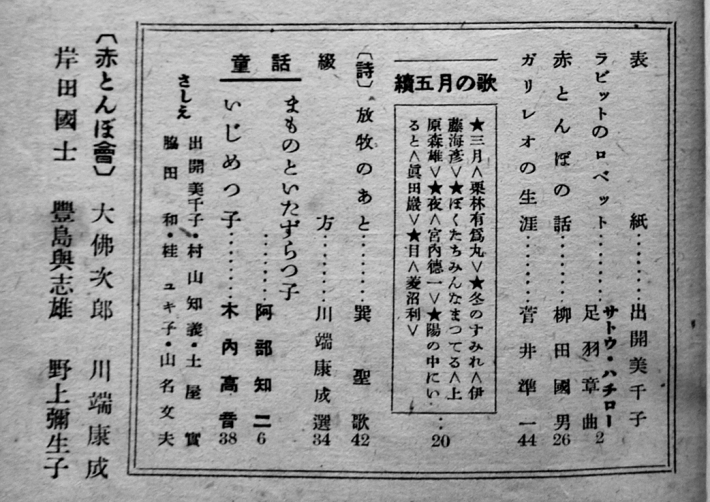 表紙………出開美千子
ラビットのロベット………サトウ・ハチロー
足羽章曲2
赤とんぼの話………柳田國男26
ガリレオの生涯………菅井準一44
續五月の歌………20
★三月<栗林有爲丸>★冬のすみれ<伊
藤海彥>★ぼくたちみんなまつてる<上
原森雄>★夜<宮内德一>★陽の中にい
ると<眞田巖>★目<菱沼利>
〔詩〕放牧のあと……巽聖歌42
綴方………川端康成選34
童話
まものといたずらつ子………阿部知二6
いじめつ子………木內高音38
さしえ
出開美千子・村山知義・土屋實
脇田和・桂ユキ子・山名文夫
〔赤とんぼ會〕大佛次郞 川端康成
岸田國士 豐島與志雄 野上彌生子